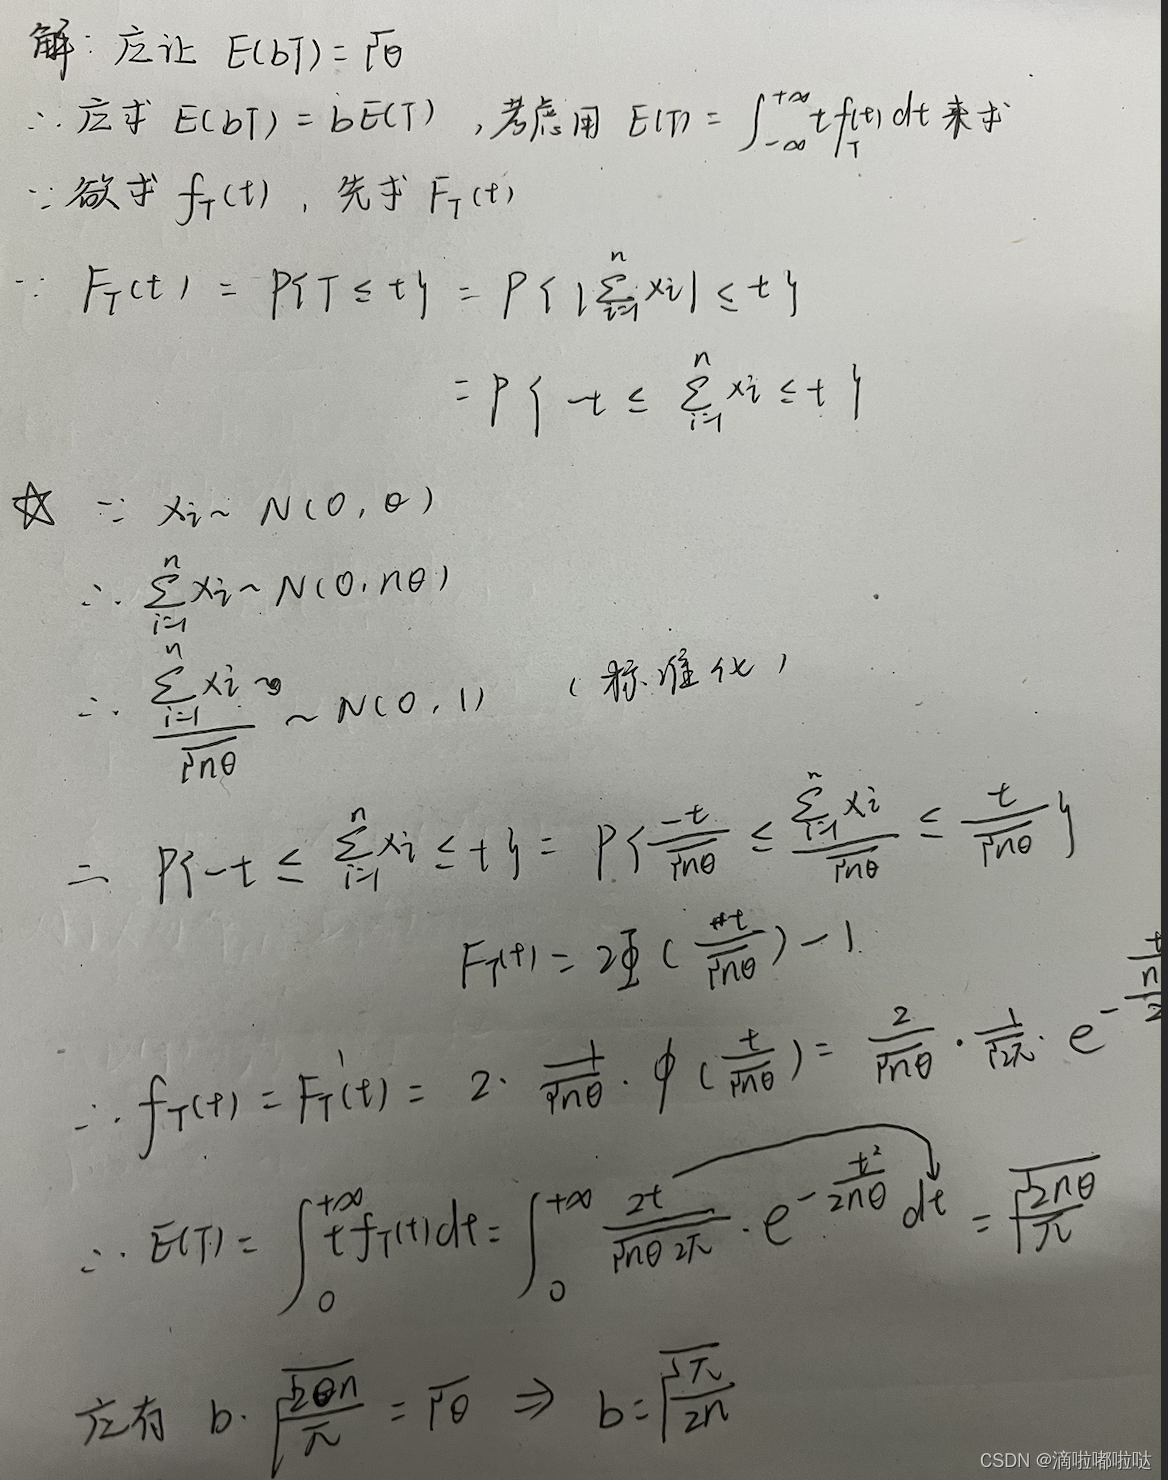 解: 应让 E(bT) = √θ
∴ 应求 E(bT) = bE(T) , 考虑用 E(T) = ∫_{-∞}^{+∞} t f_T(t) dt 来求
∵ 欲求 f_T(t) , 先求 F_T(t)
∵ F_T(t) = P{T ≤ t} = P{|∑_{i=1}^{n} Xi| ≤ t}
= P{-t ≤ ∑_{i=1}^{n} Xi ≤ t}
☆ ∵ Xi ~ N(0, θ)
∴ ∑_{i=1}^{n} Xi ~ N(0, nθ)
∴ (∑_{i=1}^{n} Xi)/√(nθ) ~ N(0, 1) (标准化)
∴ P{-t ≤ ∑_{i=1}^{n} Xi ≤ t} = P{-t/√(nθ) ≤ (∑_{i=1}^{n} Xi)/√(nθ) ≤ t/√(nθ)}
F_T(t) = 2Φ(t/√(nθ)) - 1
∴ f_T(t) = F_T'(t) = 2 · 1/√(nθ) · φ(t/√(nθ)) = 2/√(nθ) · 1/√(2π) · e^-
∴ E(T) = ∫_0^{+∞} t f_T(t) dt = ∫_0^{+∞} 2t/√(nθ 2π) · e^{-t²/(2nθ)} dt = √(2nθ/π)
应有 b · √(2θn/π) = √θ ⇒ b = √(π/2n)
CSDN @滴啦嘟啦哒